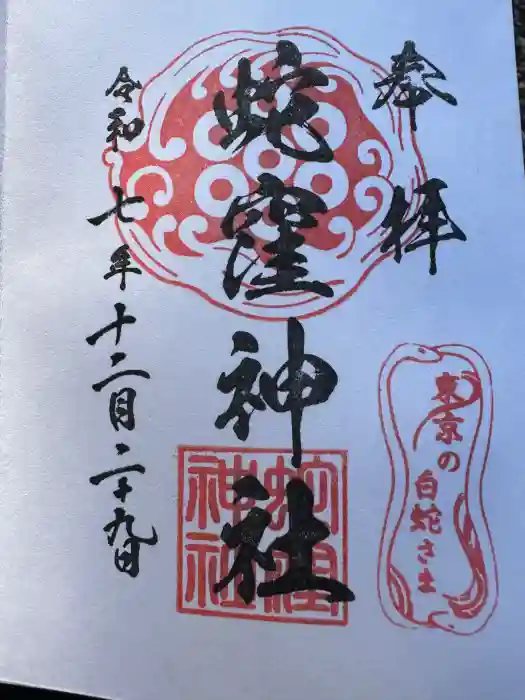 奉拝
蛇窪神社
蛇窪神社
東京の
白蛇さま
令和七年十二月二十九日